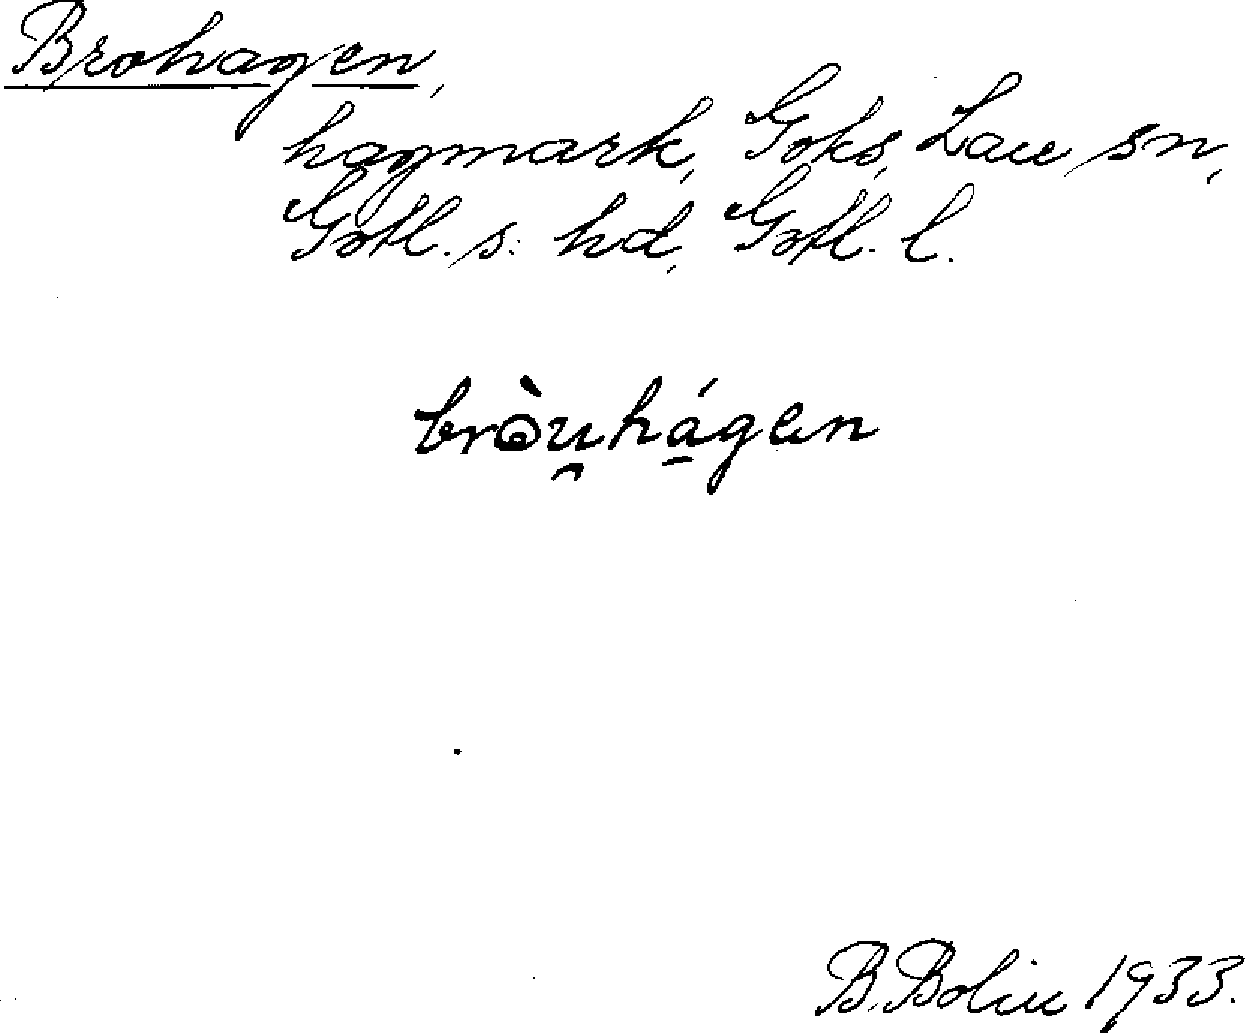 Brohagen,
hagmark, Goks, Lau sn,
Gotl. s. hd, Gotl. l.
bròu̯há̱gen
B. Bolin 1933.